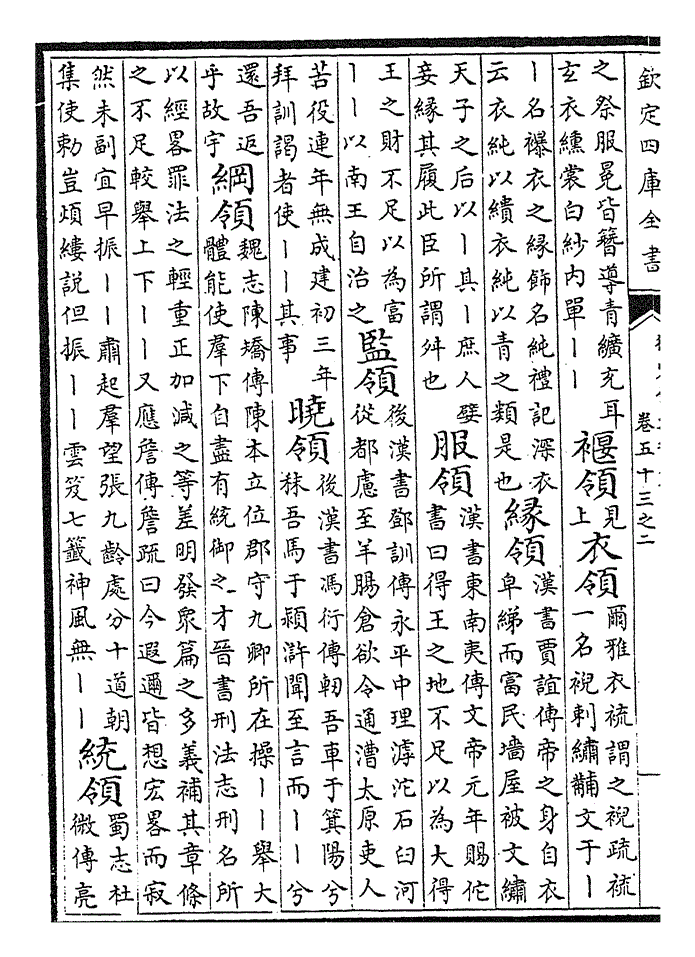 欽定四庫全書
卷五十三之二
之祭服冕皆簪導青纊充耳
玄衣纁裳白紗内單丨丨
褗領
見上
衣領
爾雅衣裗謂之䘽疏裗
一名䘽刺繡黼文于丨
丨名襮衣之緣飾名純禮記深衣
云衣純以繢衣純以青之類是也
緣領
漢書賈誼傳帝之身自衣
皁綈而富民墻屋被文繡
天子之后以丨其丨庶人孽
妾緣其履此臣所謂舛也
服領
漢書東南夷傳文帝元年賜佗
書曰得王之地不足以為大得
王之財不足以為富
丨丨以南王自治之
監領
後漢書鄧訓傳永平中理滹沱石臼河
從都慮至羊腸倉欲令通漕太原吏人
苦役連年無成建初三年
拜訓謁者使丨丨其事
曉領
後漢書馮衍傳軔吾車于箕陽兮
秣吾馬于潁滸聞至言而丨丨兮
還吾返
乎故宇
綱領
魏志陳矯傳陳本立位郡守九卿所在操丨丨舉大
體能使羣下自盡有統御之才晉書刑法志刑名所
以經畧罪法之輕重正加減之等差明發衆篇之多義補其章條
之不足較舉上下丨丨又應詹傳詹疏曰今遐邇皆想宏畧而寂
然未副宜早振丨丨肅起羣望張九齡處分十道朝
集使勅豈煩縷說但振丨丨雲笈七籤神風無丨丨
統領
蜀志杜
微傳亮